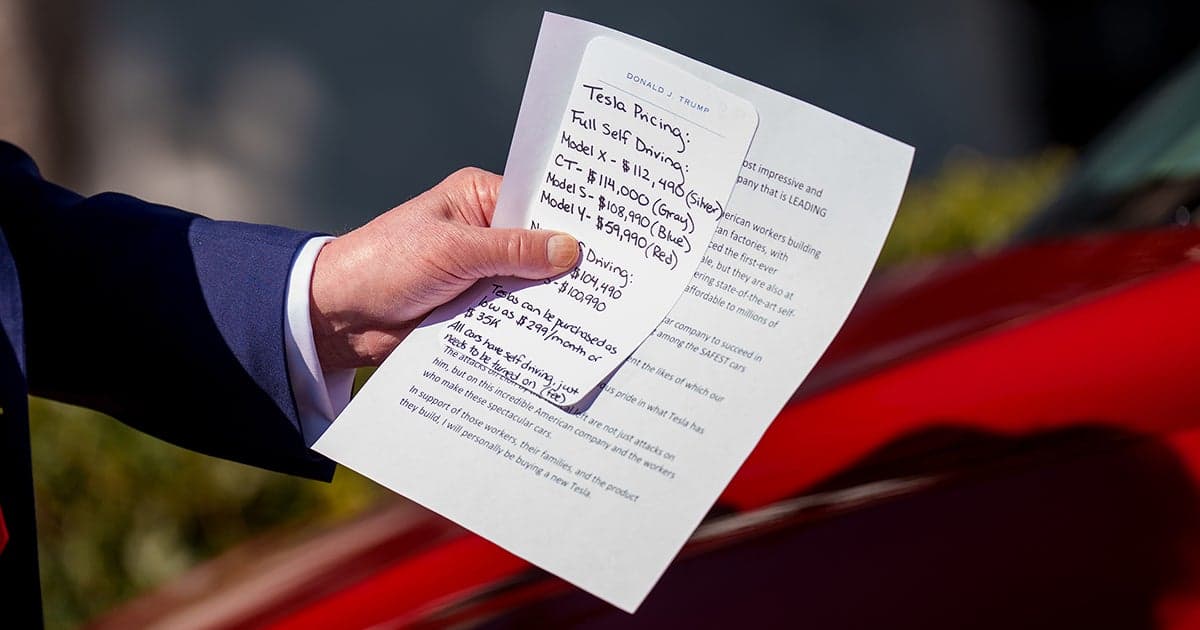 DONALD J. TRUMP
Tesla Pricing:
Full Self Driving:
Model X - $112,490 (Silver)
CT - $114,000 (Gray)
Model S - $108,990 (Blue)
Model Y - $59,990 (Red)
Driving:
$104,490
- $100,990
Teslas can be purchased as
low as $299/month or
$35K
All cars have self driving, just
needs to be turned on (fee)
impressive and
that is LEADING
workers building
factories, with
the first-ever
but they are also at
state-of-the-art self-
affordable to millions of
company to succeed in
among the SAFEST cars
the likes of which our
pride in what Tesla has
The attacks on are not just attacks on
him, but on this incredible American company and the workers
who make these spectacular cars.
In support of those workers, their families, and the product
they build, I will personally be buying a new Tesla.